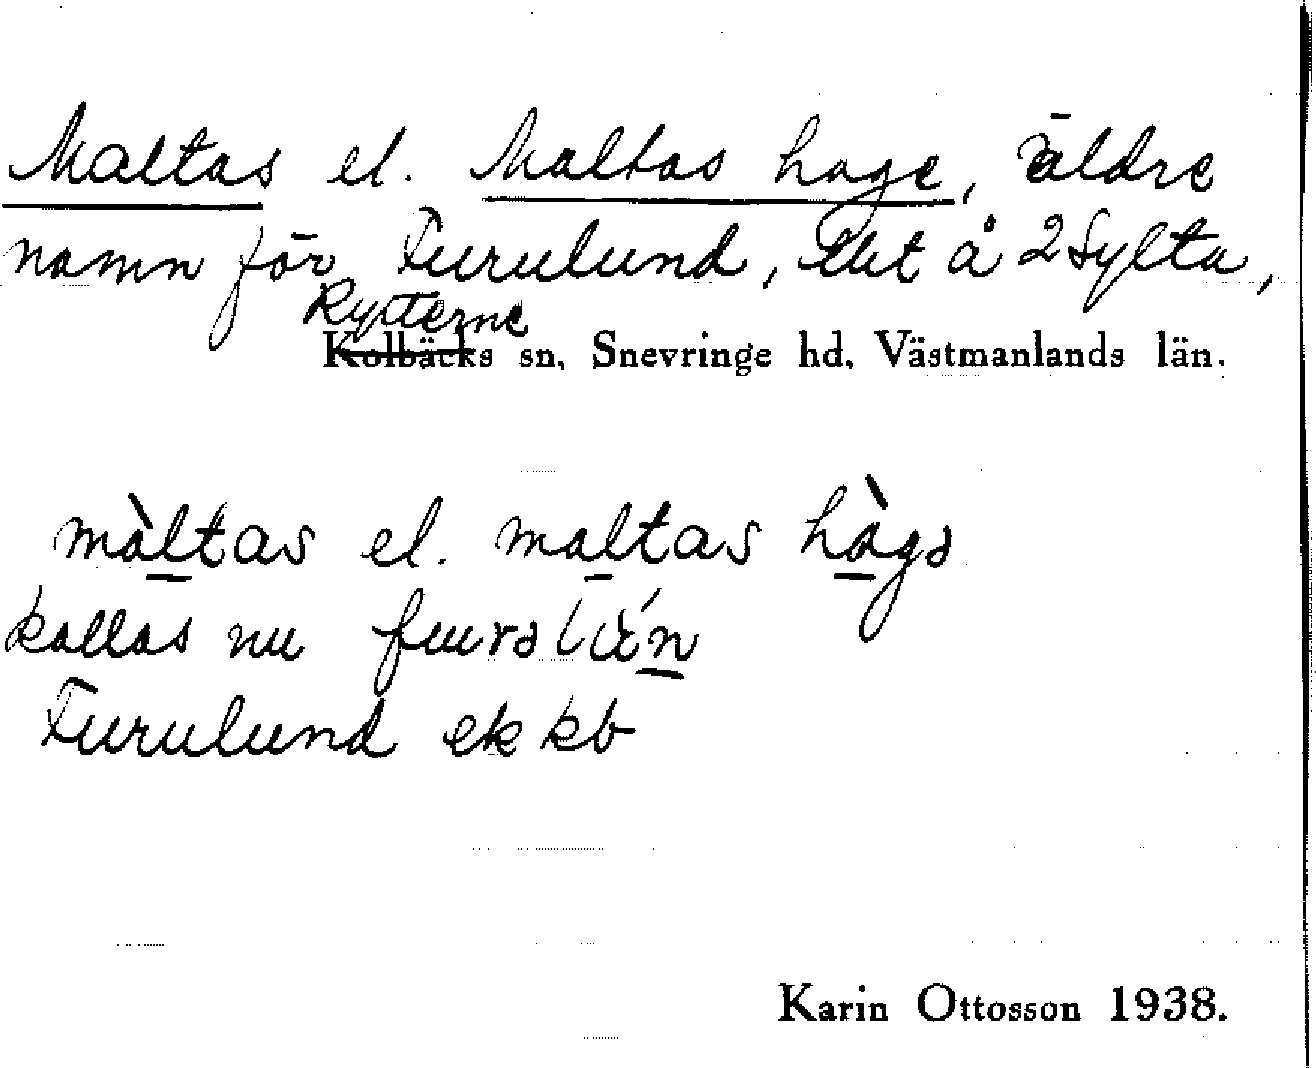 Maltas el. Maltas hage, äldre
namn för Furulund, till å 2 Sylta,
Rytterne
Kolbäcks sn, Snevringe hd, Västmanlands län.
màltas el. maltas hàgə
kallas nu furəlún
Furulund ek kb
Karin Ottosson 1938.